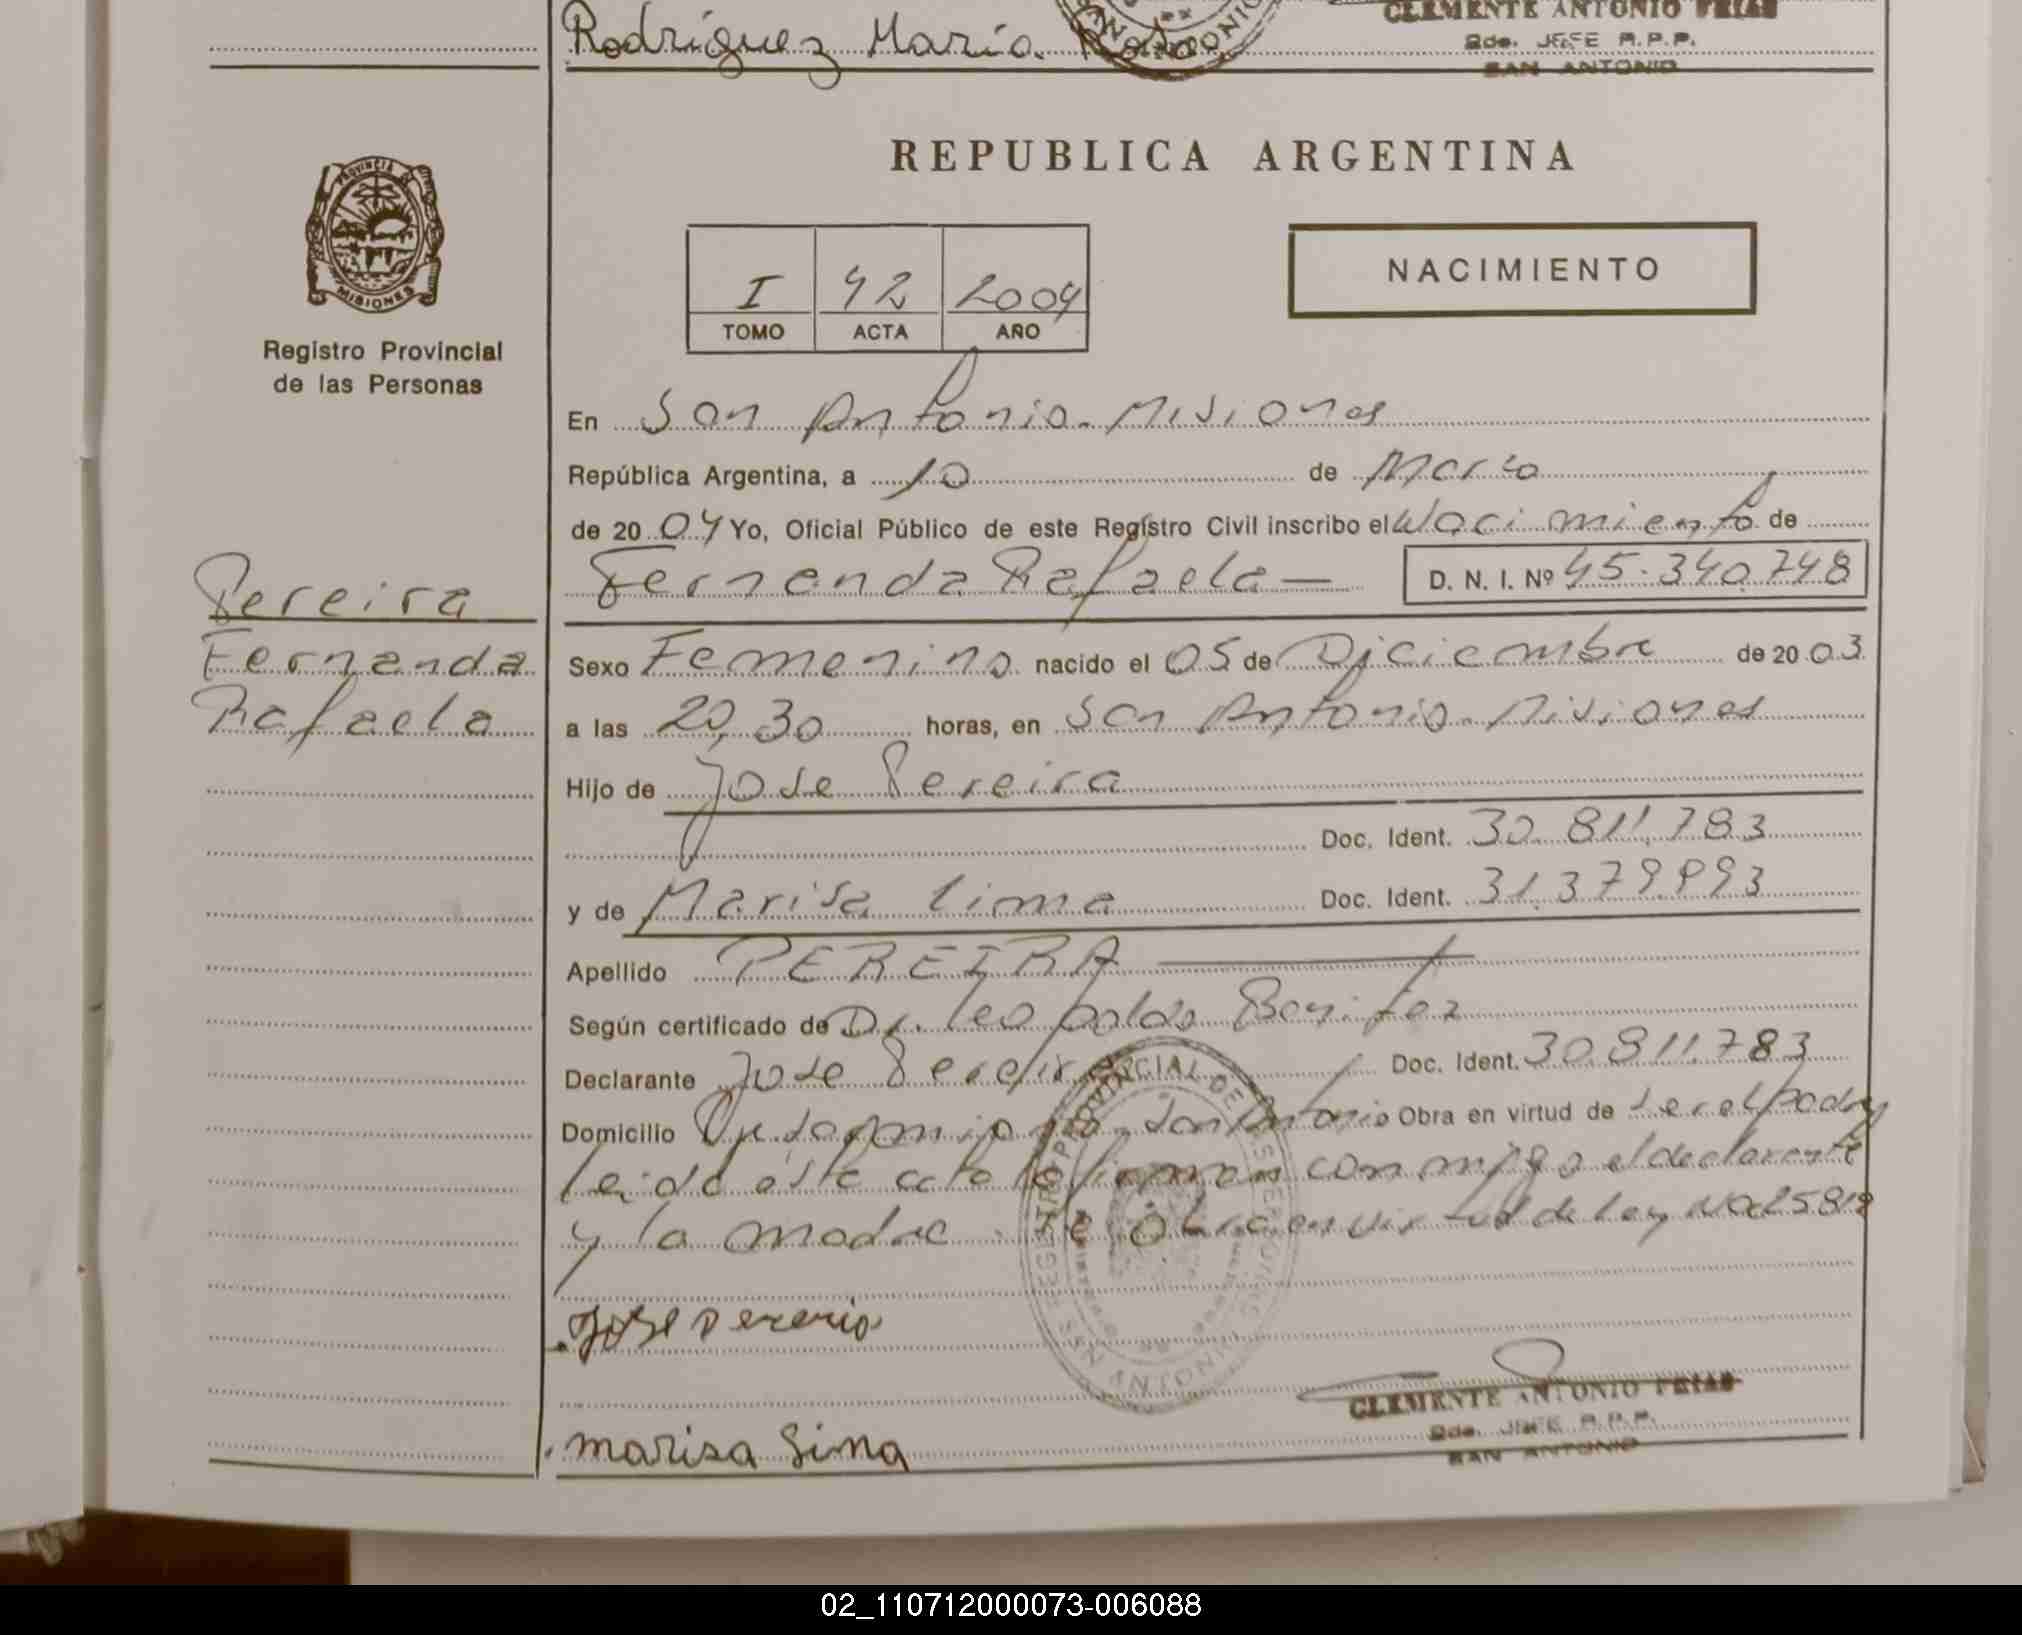 Rodríguez María Rosa
CLEMENTE ANTONIO FRIAS
JEFE R.P.P.
SAN ANTONIO
REPUBLICA ARGENTINA
PROVINCIA DE MISIONES
I 42 2004
TOMO ACTA AÑO
NACIMIENTO
Registro Provincial
de las Personas
En San Antonio. Misiones
República Argentina, a 10 de Marzo
de 2004 Yo, Oficial Público de este Registro Civil inscribo el Nacimiento de
Fernanda Rafaela — D. N. I. Nº 45.340.748
Pereira
Fernanda
Rafaela
Sexo Femenino nacido el 05 de Diciembre de 2003
a las 20,30 horas, en San Antonio. Misiones
Hijo de Jose Pereira
Doc. Ident. 30.811.783
y de Marisa Lima Doc. Ident. 31.379.993
Apellido PEREIRA
Según certificado de Dr. Leopoldo Benitez
Declarante Jose Pereira Doc. Ident. 30.811.783
Domicilio San Antonio Obra en virtud de ser el padre
leida este acta lo firman conmigo el declarante
y la madre. Se obra en virtud de Ley Nº 25819
REGISTRO PROVINCIAL DE LAS PERSONAS
SAN ANTONIO
Jose Pereria
CLEMENTE ANTONIO FRIAS
JEFE R.P.P.
SAN ANTONIO
Marisa Lima
02_110712000073-006088